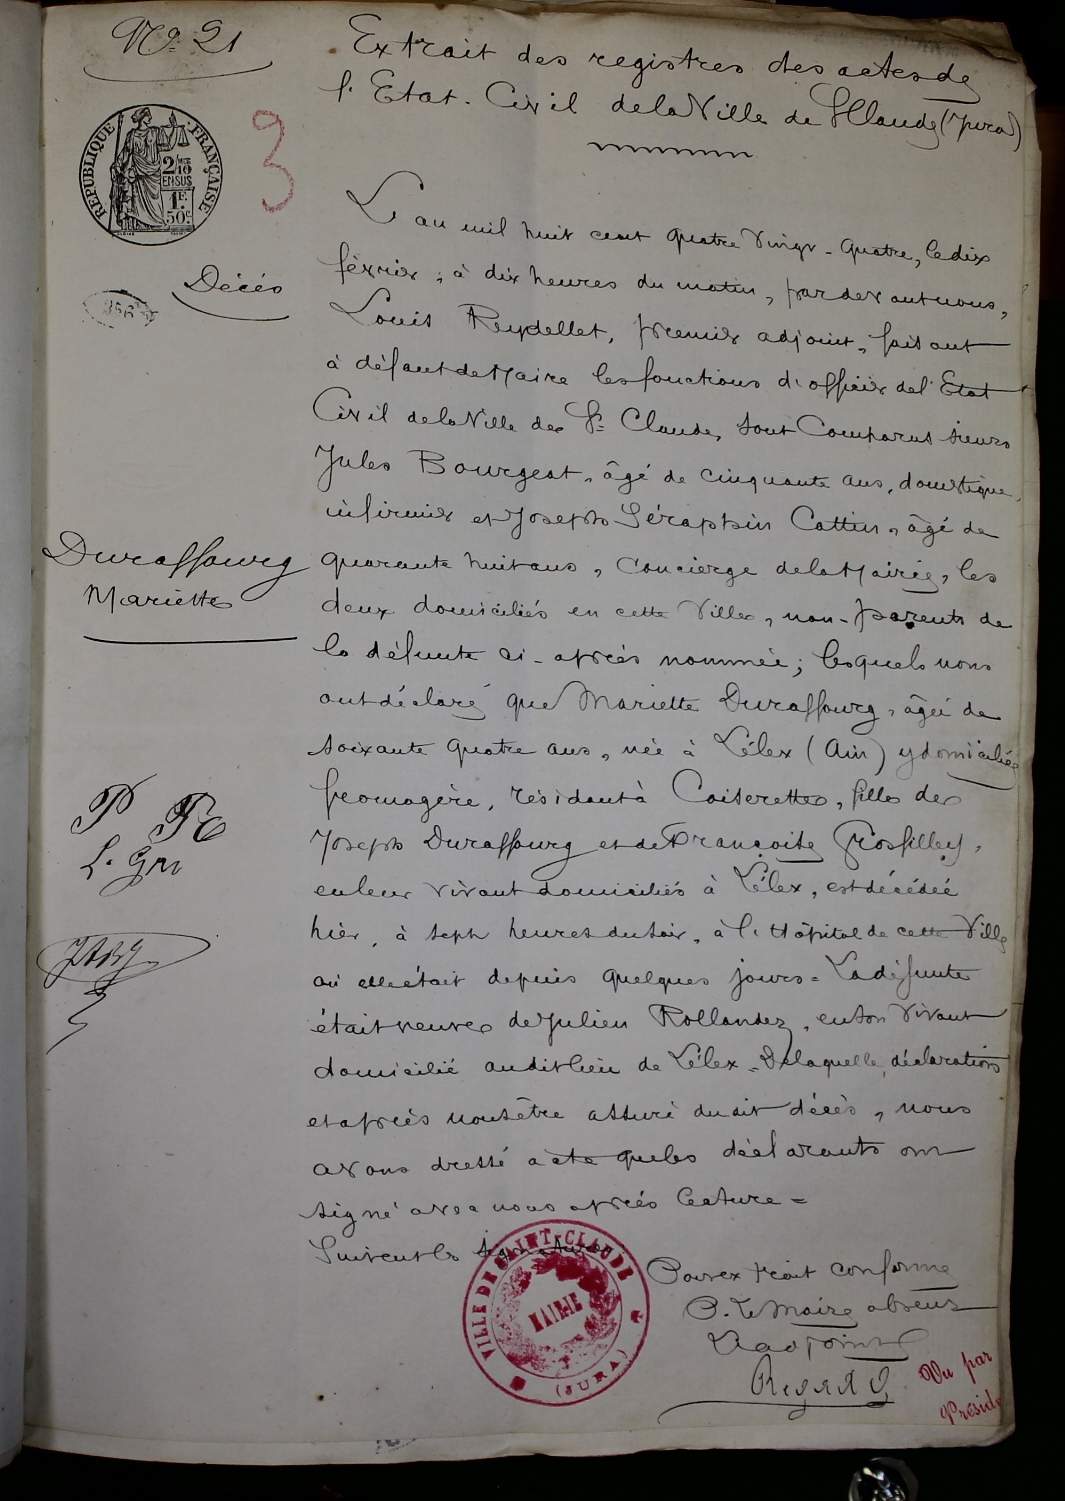 N° 21
Extrait des registres des actes de
l'Etat-Civil de la Ville de St Claude (Jura)
RÉPUBLIQUE FRANÇAISE
2/10mes
EN SUS
1F.
50c.
3
Décès
L'an mil huit cent quatre vingt-quatre, le dix
février, à dix heures du matin, par devant nous,
Louis Reydellet, premier adjoint, faisant
à défaut de Maire les fonctions d'officier de l'Etat
Civil de la Ville de St Claude, sont comparus sieurs
Jules Bourgeat, âgé de cinquante ans, domestique
infirmier et Joseph Séraphin Cattin, âgé de
Duraffourg
Mariette
quarante huit ans, concierge de la Mairie, les
deux domiciliés en cette Ville, non-parents de
la défunte ci-après nommée; lesquels nous
ont déclaré que Mariette Duraffourg, âgée de
soixante quatre ans, née à Lélex (Ain) y domiciliée
fromagère, résidant à Coiserette, fille de
Joseph Duraffourg et de Françoise Grosfilley,
en leur vivant domiciliés à Lélex, est décédée
hier, à sept heures du soir, à l'Hôpital de cette Ville
où elle était depuis quelques jours = La défunte
était veuve de Julien Rollandez, en son vivant
domicilié audit lieu de Lélex. De laquelle déclaration
et après nous être assuré dudit décès, nous
avons dressé acte que les déclarants ont
signé avec nous après lecture =
Suivent les signatures
VILLE DE SAINT-CLAUDE
MAIRIE
(JURA)
Pour extrait conforme
P. Le Maire absent
L'adjoint
Vu par
Présid